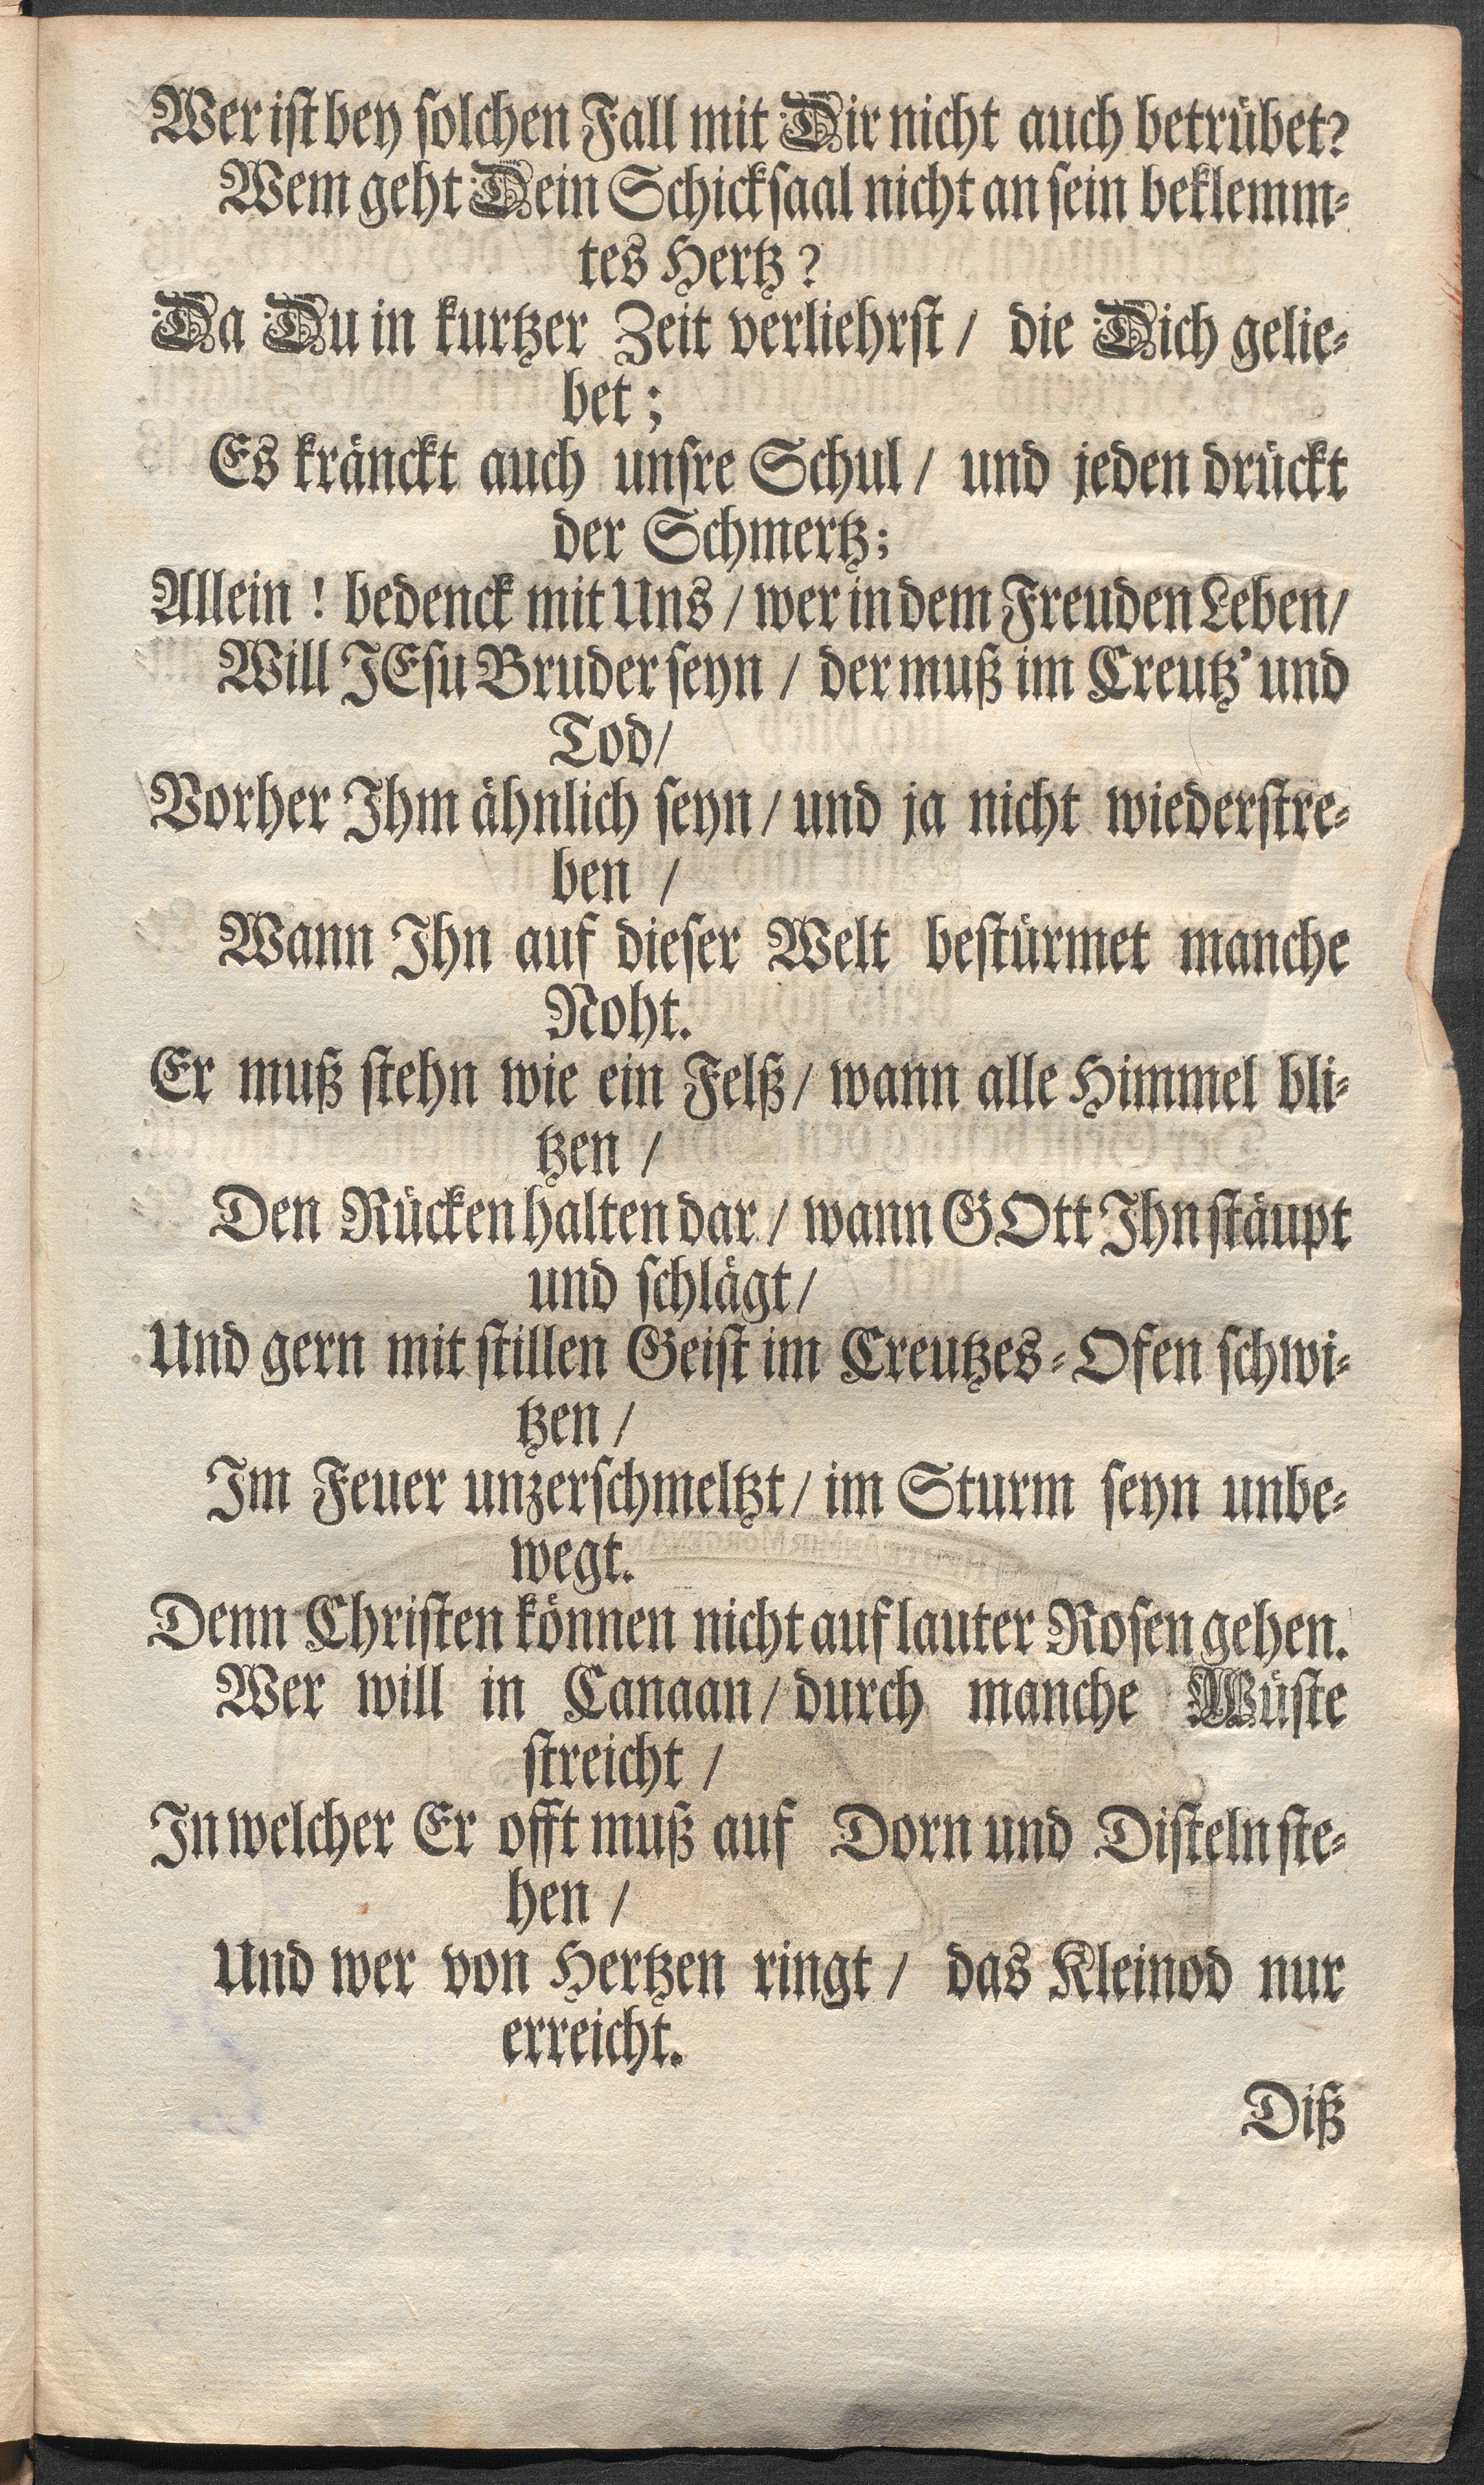 Wer ist bey solchen Fall mit Dir nicht auch betrübet?
Wem geht Dein Schicksaal nicht an sein beklemm-
tes Hertz?
Da Du in kurtzer Zeit verliehrst / die Dich gelie-
bet;
Es kränckt auch unsre Schul / und jeden drückt
der Schmertz;
Allein! bedenck mit Uns / wer in dem Freuden Leben /
Will JEsu Bruder seyn / der muß im Creutz' und
Tod /
Vorher Ihm ähnlich seyn / und ja nicht wiederstre-
ben /
Wann Ihn auf dieser Welt bestürmet manche
Noht.
Er muß stehn wie ein Felß / wann alle Himmel bli-
tzen /
Den Rücken halten dar / wann GOtt Ihn stäupt
und schlägt /
Und gern mit stillen Geist im Creutzes-Ofen schwi-
tzen /
Im Feuer unzerschmeltzt / im Sturm seyn unbe-
wegt.
Denn Christen können nicht auf lauter Rosen gehen.
Wer will in Canaan / durch manche Wüste
streicht /
In welcher Er offt muß auf Dorn und Disteln ste-
hen /
Und wer von Hertzen ringt / das Kleinod nur
erreicht.
Diß